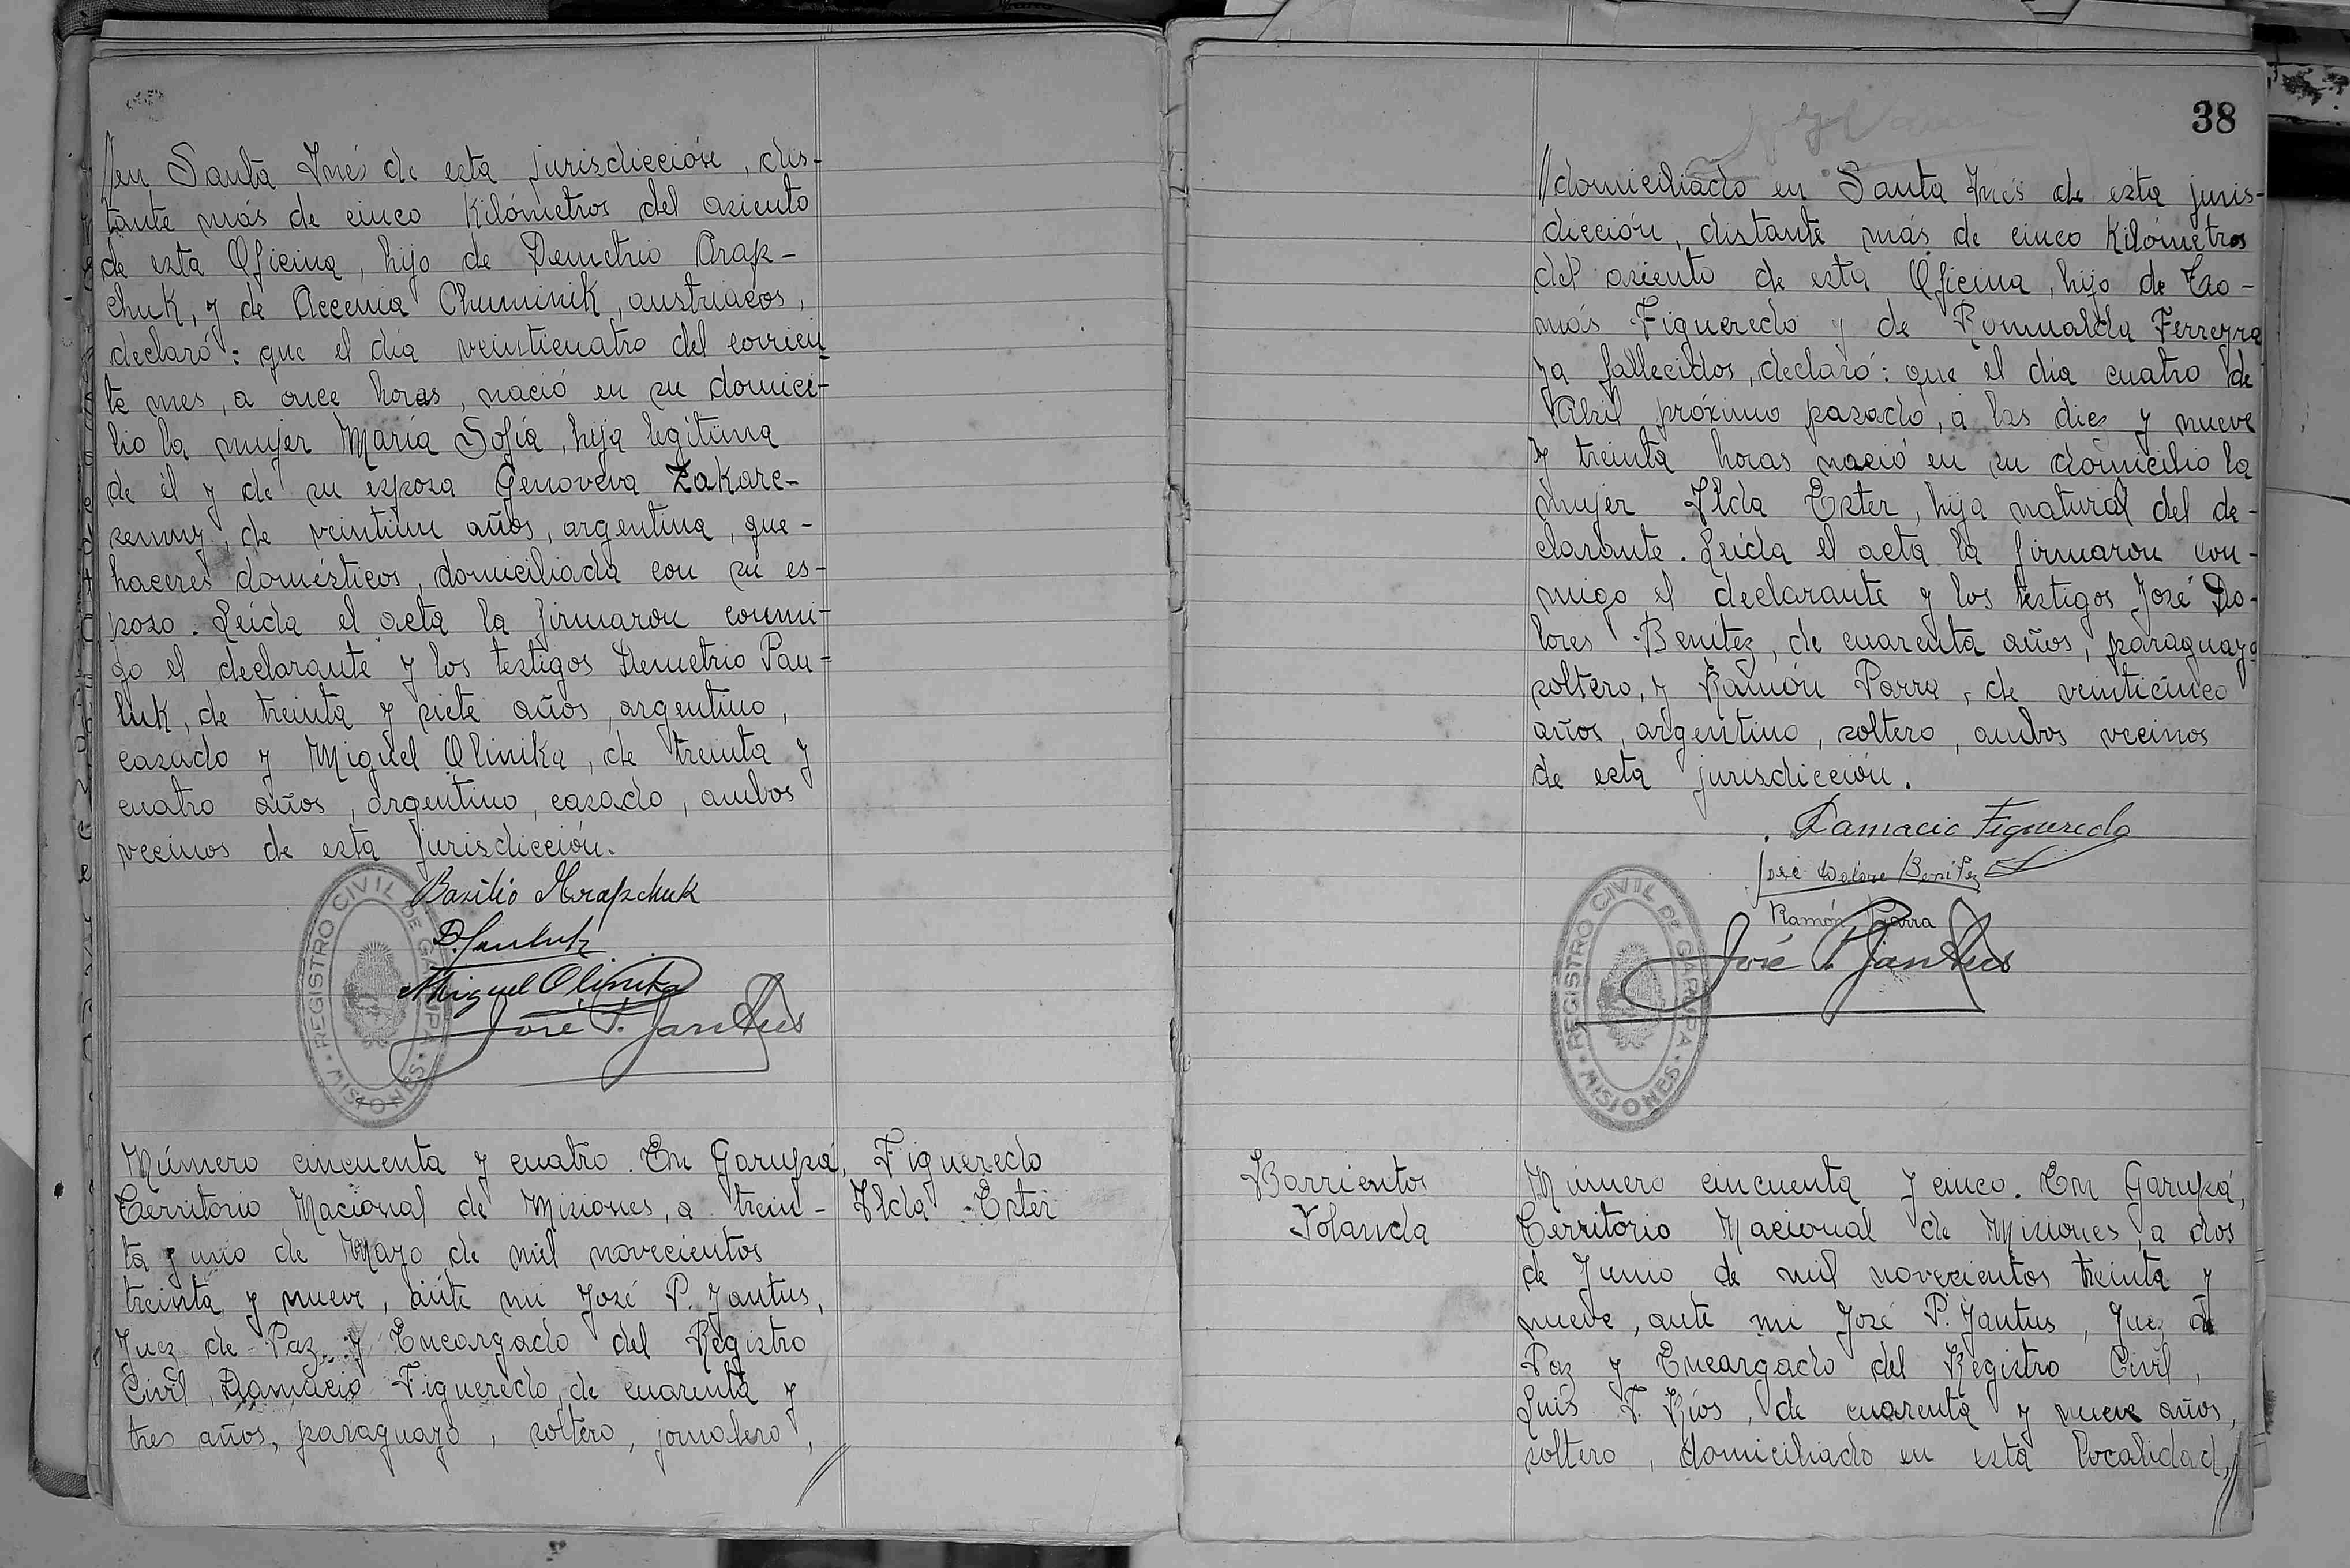 //en Santa Inés de esta jurisdicción, dis-
tante más de cinco Kilómetros del asiento
de esta Oficina, hijo de Demetrio Arap-
chuk, y de Accenia Chuminik, austriacos,
declaró: que el día veinticuatro del corrien-
te mes, a once horas, nació en su domici-
lio la mujer María Sofía, hija legítima
de él y de su esposa Genoveva Zakare-
semny, de veintiun años, argentina, que-
haceres domésticos, domiciliada con su es-
poso. Leída el acta la firmaron conmi-
go el declarante y los testigos Demetrio Pau-
luk, de treinta y siete años, argentino,
casado y Miguel Olinika, de treinta y
cuatro años, argentino, casado, ambos
vecinos de esta jurisdicción.
Basilio Arapchuk
D. Pauluk
Miguel Olinika
José P. Jantus
REGISTRO CIVIL DE GARUPA
· MISIONES ·
Número cincuenta y cuatro. En Garupá,
Territorio Nacional de Misiones, a trein-
ta y uno de Mayo de mil novecientos
treinta y nueve, ante mi José P. Jantus,
Juez de Paz y Encargado del Registro
Civil, Damacio Figueredo, de cuarenta y
tres años, paraguayo, soltero, jornalero, //
Figueredo
Ilda Ester
38
//domiciliado en Santa Inés de esta juris-
dicción, distante más de cinco Kilómetros
del asiento de esta Oficina, hijo de To-
más Figueredo y de Romualda Ferreyra
ya fallecidos, declaró: que el día cuatro de
Abril próximo pasado, a las diez y nueve
y treinta horas nació en su domicilio la
mujer Ilda Ester, hija natural del de-
clarante. Leída el acta la firmaron con-
migo el declarante y los testigos José Do-
lores Benítez, de cuarenta años, paraguayo
soltero, y Ramón Parra, de veinticinco
años, argentino, soltero, ambos vecinos
de esta jurisdicción.
Damacio Figueredo
José Dolore Benitez
Ramón Parra
José P. Jantus
REGISTRO CIVIL DE GARUPA
· MISIONES ·
Barrientos
Yolanda
Número cincuenta y cinco. En Garupá,
Territorio Nacional de Misiones, a dos
de Junio de mil novecientos treinta y
nueve, ante mi José P. Jantus, Juez de
Paz y Encargado del Registro Civil,
Luís F. Ríos, de cuarenta y nueve años,
soltero, domiciliado en esta localidad, //